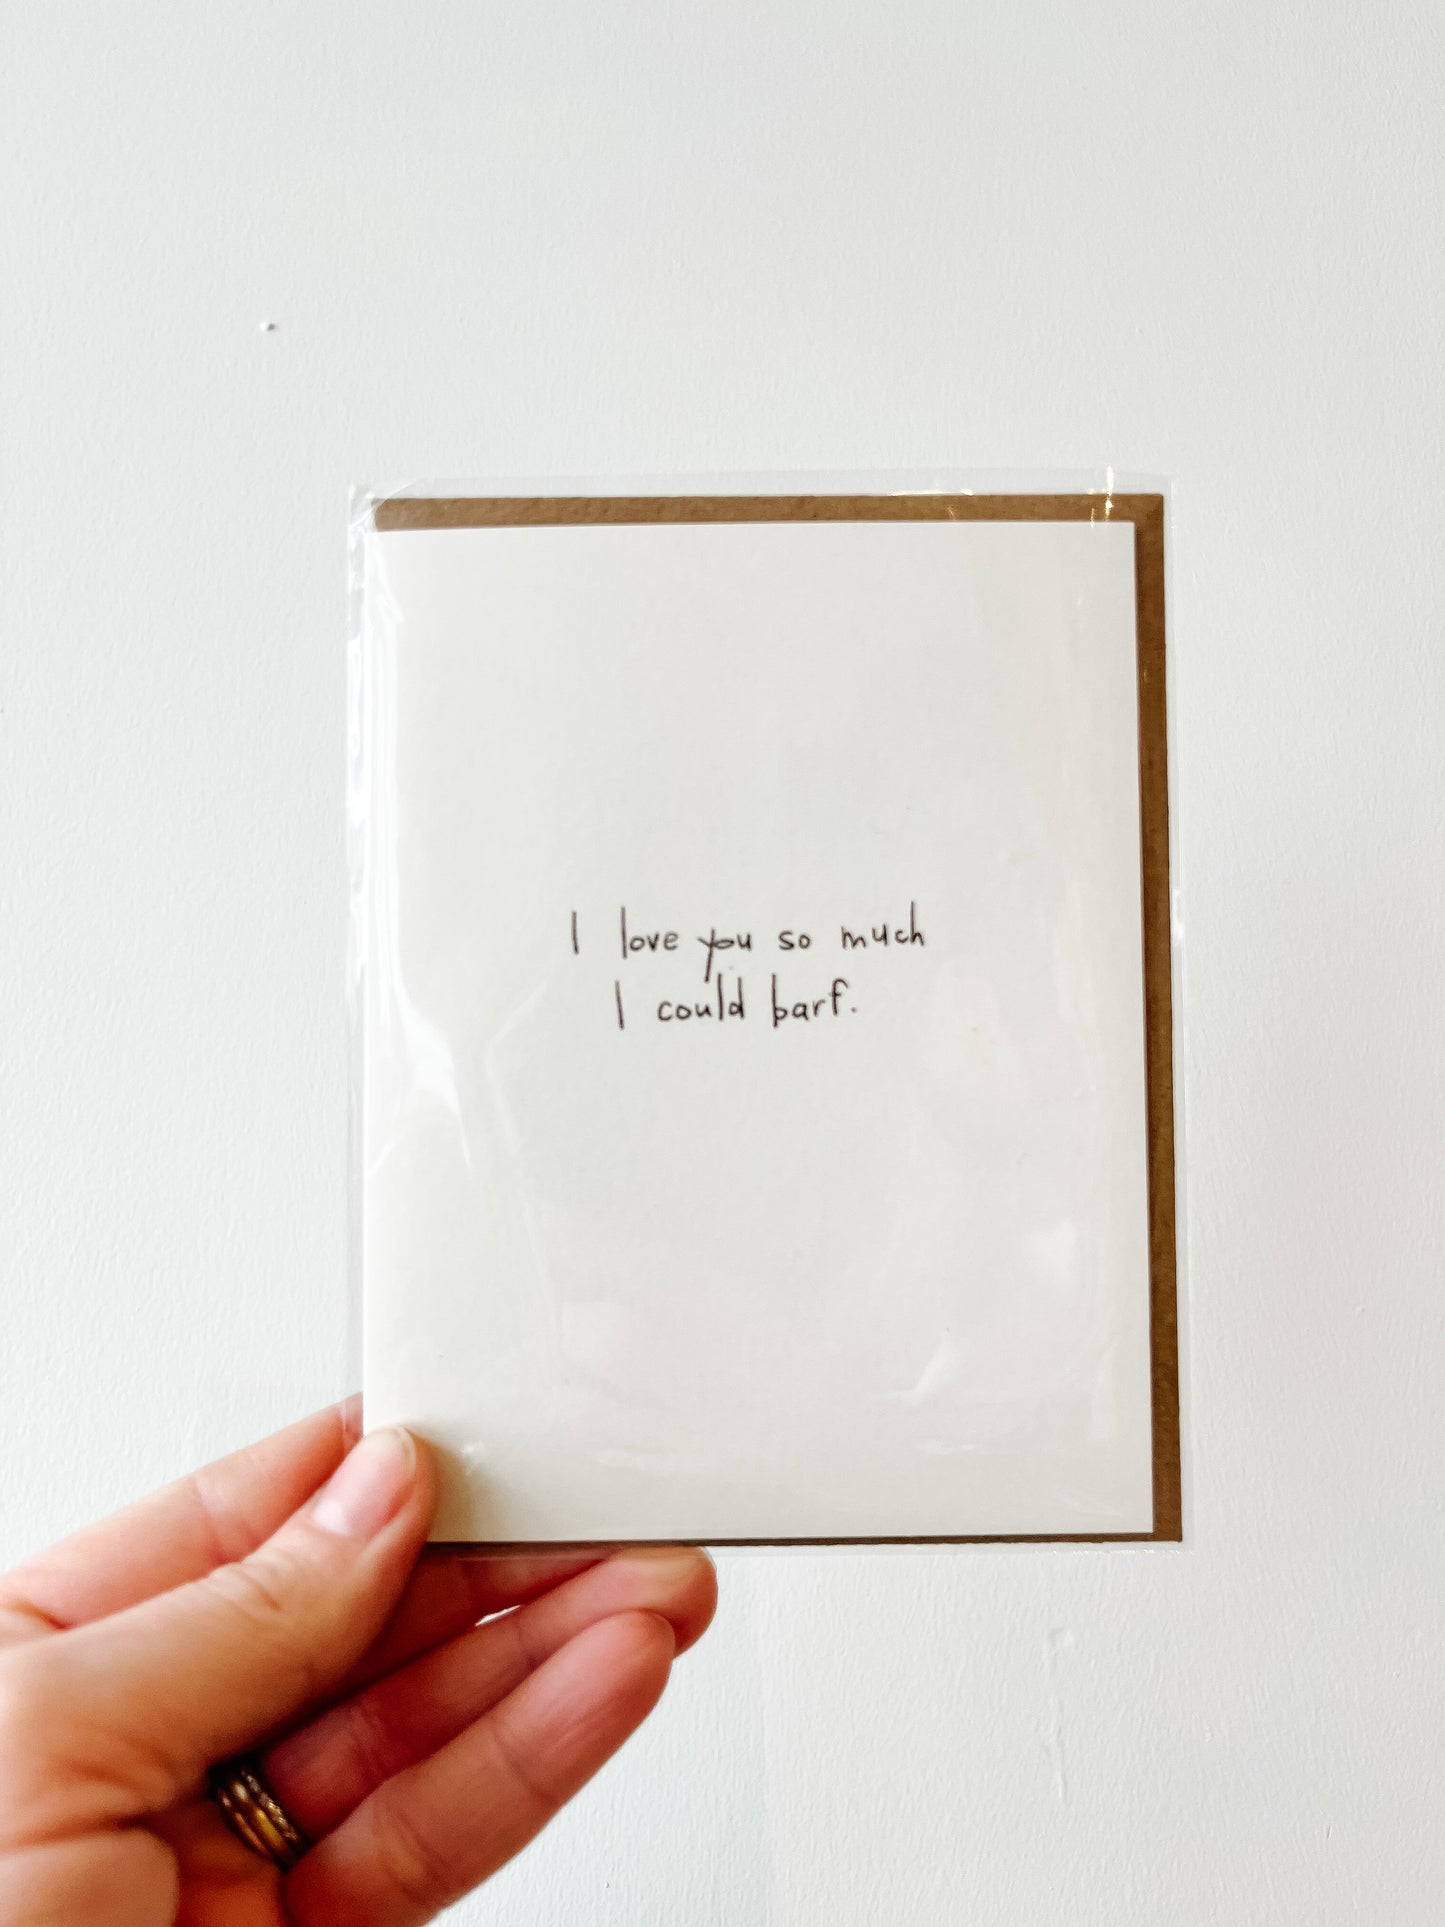 I love you so much
I could barf.